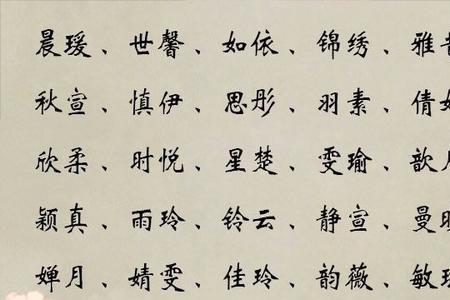 晨瑗、世馨、如依、锦绣、雅
秋宣、慎伊、思彤、羽素、倩
欣柔、时悦、星楚、雯瑜、歆
颖真、雨玲、铃云、静宣、曼
婵月、婧雯、佳玲、韵薇、敏